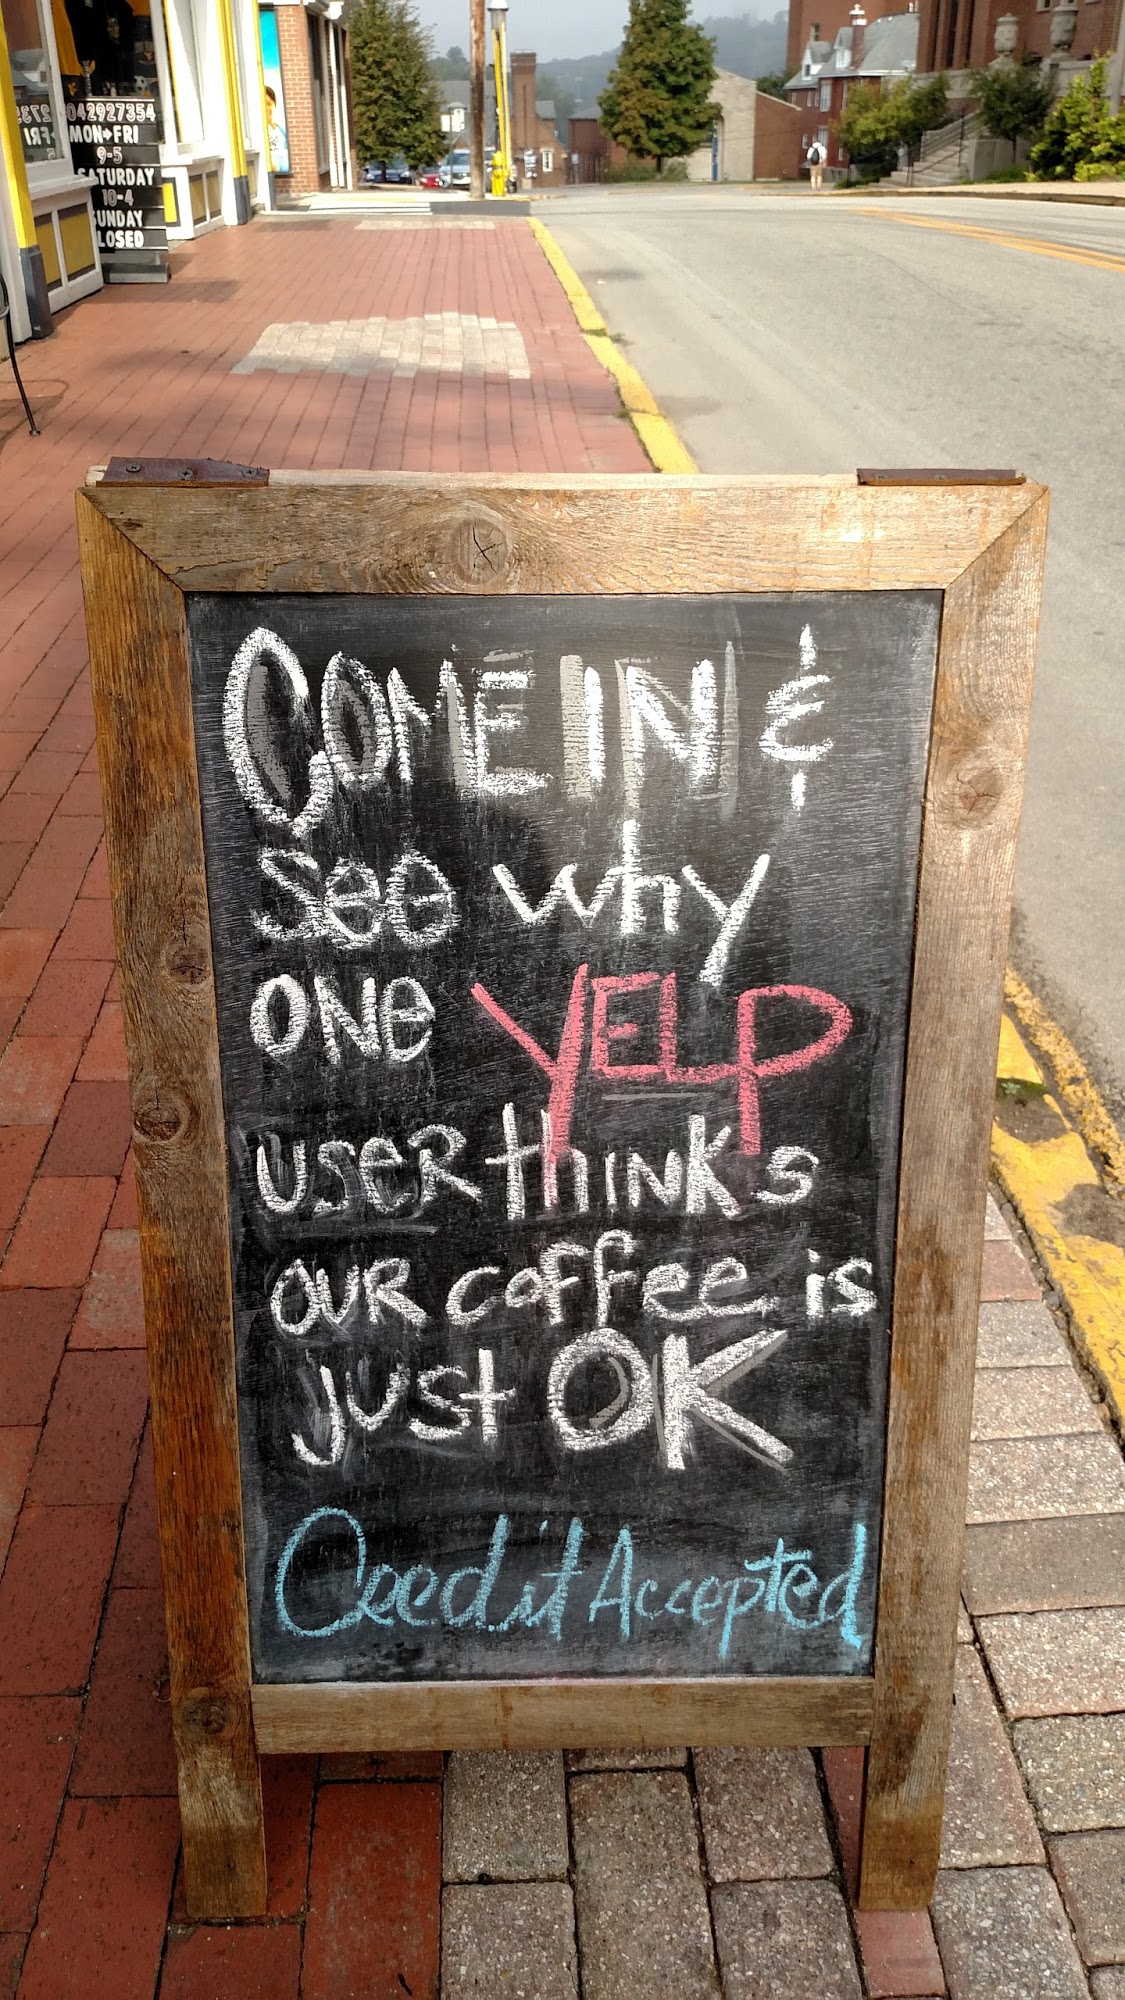 042927354
MON-FRI
9-5
SATURDAY
10-4
SUNDAY
CLOSED
COME IN &
see why
one YELP
user thinks
our coffee is
just OK
Credit Accepted